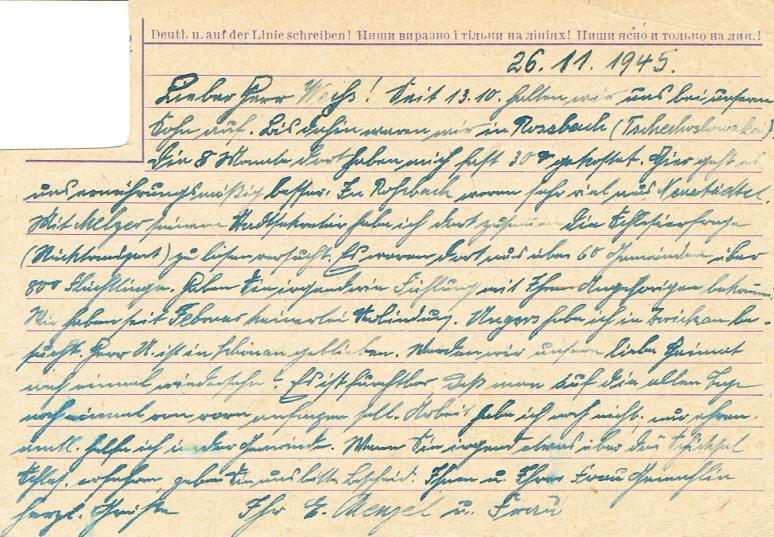 Deutl. u. auf der Linie schreiben! Пиши виразно і тільки на лініях! Пиши ясно и только на лин.!
26. 11. 1945.
Lieber Herr Weihs! Seit 13.10. halten wir uns bei unserm
Sohn auf. Bis dahin waren wir in Rossbach (Tschechoslowakei).
Die 8 Monate dort haben mich fast 30 gekostet. Hier geht es
uns ernährungsmäßig besser. In Roßbach waren sehr viel aus Neustädtel.
Mit Melzer seinem Stadtsekretär habe ich dort zusammen die Schlesierfrage
(Rücktransport) zu lösen versucht. Es waren dort aus über 60 Gemeinden über
800 Flüchtlinge. Haben Sie irgendwie Fühlung mit Ihren Angehörigen bekommen?
Wir haben seit Februar keinerlei Verbindung. Ungers habe ich in Zwickau be-
sucht. Herr U. ist in geblieben. Werden wir unsere liebe Heimat
noch einmal wiedersehn? Es ist furchtbar daß man auf die alten Tage
noch einmal von vorn anfangen soll. Arbeit habe ich noch nicht, nur ehren-
amtl. helfe ich in der Gemeinde. Wenn Sie irgend etwas über das Schicksal
Schles. erfahren, geben Sie uns bitte Bescheid. Ihnen u. Ihrer Frau Gemahlin
herzl. Grüße Ihr E. Menzel u. Frau